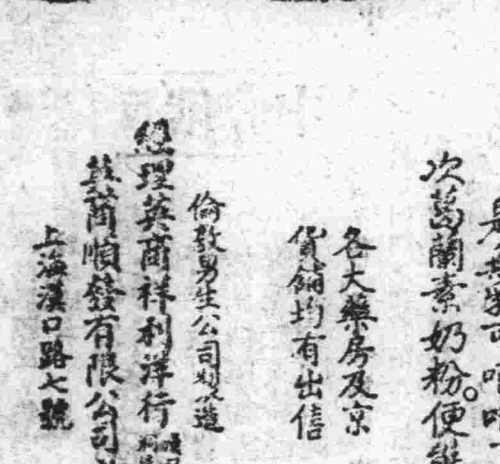 次葛蘭素奶粉。便
各大藥房及京
貨鋪均有出售
倫敦男生公司製造
總理英商祥利洋行
英商順發有限公司
上海漢口路七號